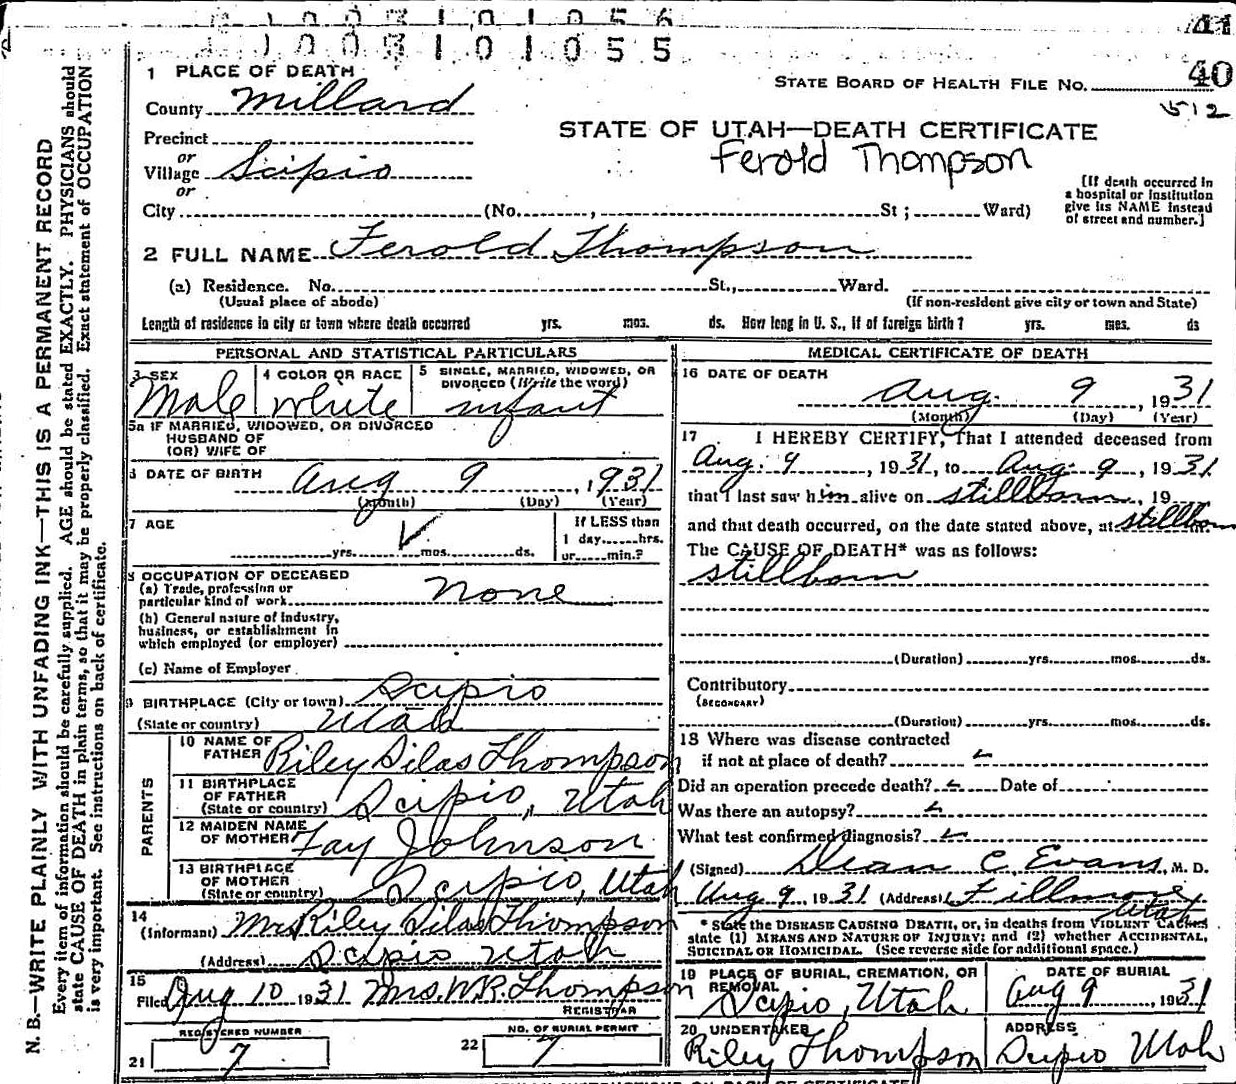 0 1 0 0 3 1 0 1 0 5 6
41
1 0 0 3 1 0 1 0 5 5
1 PLACE OF DEATH
STATE BOARD OF HEALTH FILE No. 40
County Millard
512
STATE OF UTAH—DEATH CERTIFICATE
Precinct
Ferold Thompson
or
Village Scipio
or
City (No. , St ; Ward)
[If death occurred in
a hospital or institution
give its NAME instead
of street and number.]
2 FULL NAME Ferold Thompson
(a) Residence. No. St., Ward.
(Usual place of abode) (If non-resident give city or town and State)
Length of residence in city or town where death occurred yrs. mos. ds. How long in U. S., if of foreign birth? yrs. mos. ds
PERSONAL AND STATISTICAL PARTICULARS
3 SEX
Male
4 COLOR OR RACE
white
5 SINGLE, MARRIED, WIDOWED, OR
DIVORCED (Write the word)
infant
5a IF MARRIED, WIDOWED, OR DIVORCED
HUSBAND OF
(OR) WIFE OF
6 DATE OF BIRTH Aug 9 , 1931
(Month) (Day) (Year)
7 AGE
yrs. mos. ds.
If LESS than
1 day hrs.
or min.?
8 OCCUPATION OF DECEASED
(a) Trade, profession or
particular kind of work none
(b) General nature of industry,
business, or establishment in
which employed (or employer)
(c) Name of Employer
9 BIRTHPLACE (City or town) Scipio
(State or country) Utah
PARENTS
10 NAME OF
FATHER Riley Silas Thompson
11 BIRTHPLACE
OF FATHER
(State or country) Scipio, Utah
12 MAIDEN NAME
OF MOTHER Fay Johnson
13 BIRTHPLACE
OF MOTHER
(State or country) Scipio, Utah
14
(Informant) Mrs Riley Silas Thompson
(Address) Scipio Utah
15
Filed Aug 10 1931 Mrs. W.R. Thompson
REGISTRAR
REGISTERED NUMBER
21 7
NO. OF BURIAL PERMIT
22 7
MEDICAL CERTIFICATE OF DEATH
16 DATE OF DEATH
Aug. 9 , 1931
(Month) (Day) (Year)
17 I HEREBY CERTIFY, That I attended deceased from
Aug. 9 , 1931, to Aug. 9 , 1931
that I last saw him alive on stillborn , 19
and that death occurred, on the date stated above, at stillborn m.
The CAUSE OF DEATH* was as follows:
stillborn
(Duration) yrs. mos. ds.
Contributory
(SECONDARY)
(Duration) yrs. mos. ds.
18 Where was disease contracted
if not at place of death?
Did an operation precede death? Date of
Was there an autopsy?
What test confirmed diagnosis?
(Signed) Dean C. Evans, M. D.
Aug 9, 1931 (Address) Fillmore
Utah
* State the DISEASE CAUSING DEATH, or, in deaths from VIOLENT CAUSES
state (1) MEANS AND NATURE OF INJURY; and (2) whether ACCIDENTAL,
SUICIDAL OR HOMICIDAL. (See reverse side for additional space.)
19 PLACE OF BURIAL, CREMATION, OR
REMOVAL
Scipio, Utah
DATE OF BURIAL
Aug 9 , 1931
20 UNDERTAKER
Riley Thompson
ADDRESS
Scipio Utah
N. B.—WRITE PLAINLY WITH UNFADING INK—THIS IS A PERMANENT RECORD
Every item of information should be carefully supplied. AGE should be stated EXACTLY. PHYSICIANS should
state CAUSE OF DEATH in plain terms, so that it may be properly classified. Exact statement of OCCUPATION
is very important. See instructions on back of certificate.